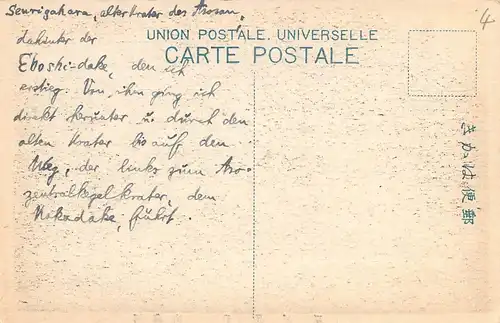 Senrigahara, alter Krater des Asosan,
dahinter der
Eboshi-dake, den ich
erstieg. Von ihm ging ich
direkt herunter u. durch den
alten Krater bis auf den
Weg, der links zum Aso-
zentralkegelkrater, dem
Nakadake, führt.
UNION POSTALE. UNIVERSELLE
CARTE POSTALE
4
きかは便郵